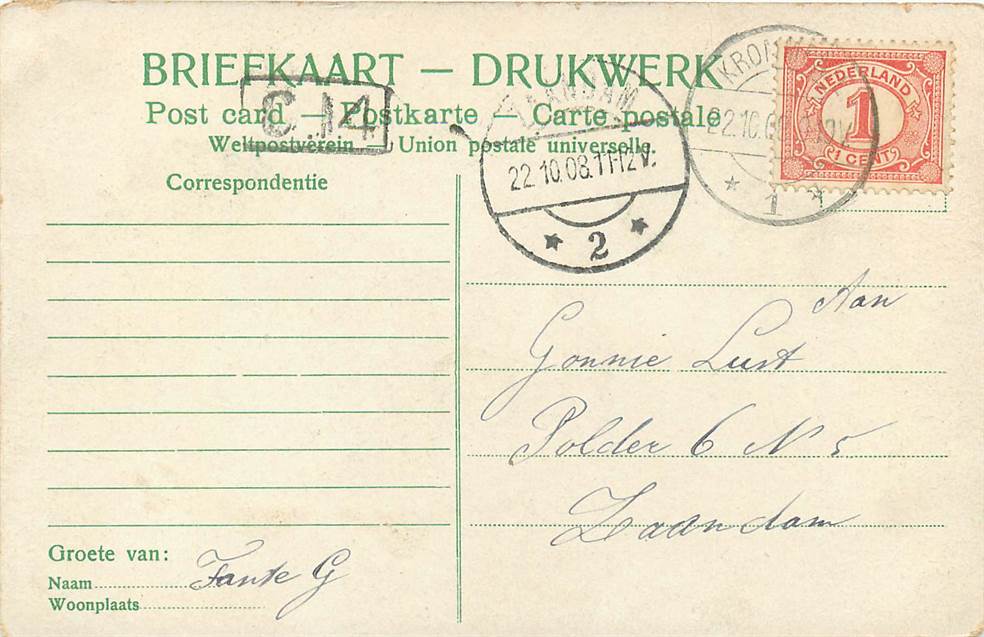 BRIEFKAART — DRUKWERK
Post card — Postkarte — Carte postale
Weltpostverein — Union postale universelle
Correspondentie
C.14
ZAANDAM
22.10.08.11-12V.
2
22.10.0
1
NEDERLAND
1
1 CENT
Aan
Gonnie Lust
Polder 6 N 5
Zaandam
Groete van:
Naam Tante G
Woonplaats